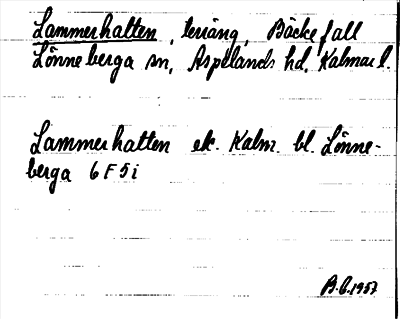 Lammerhatten, terräng, Bäckefall
Lönneberga sn, Aspelands hd, Kalmar l.
Lammerhatten ek. Kalm. bl. Lönne-
berga 6 F 5 i
B.B. 1957